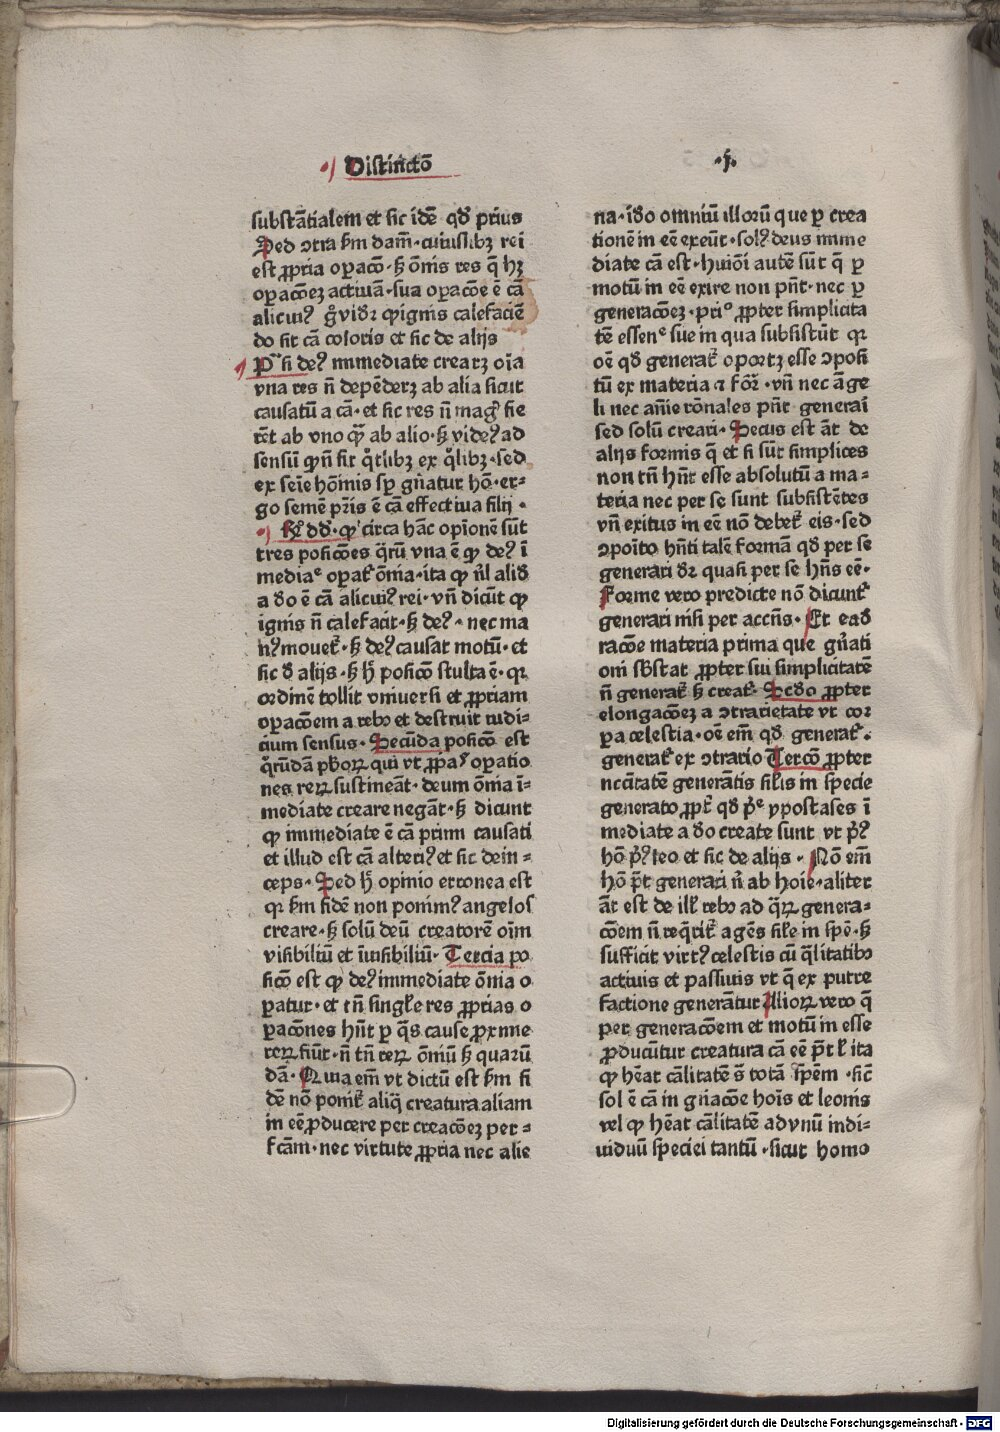 Distinctō
.j.
substātialem et sic idē qd̄ prius
Sed ↄtra ẜm dam̄. cuiuslibꝫ rei
est ꝓpria oꝑacō. ẜꝫ om̄is res q̄ hꝫ
oꝑacōeꝫ actiuā. sua oꝑacōe ē cā
alicuiꝰ gͦ vidr̄ ꝙ ignis calefaciē
do sit cā coloris et sic de alijs
si deꝰ immediate crearꝫ oīa
vna res n̄ depēderꝫ ab alia sicut
causatū a cā. et sic res n̄ magꝭ fie
rēt ab vno qͣꝫ ab alio. ẜꝫ videꝰ ad
sensū ꝙ n̄ fit qͥtlibꝫ ex qͦlibꝫ. sed
ex seīe hōmis sꝑ gn̄atur hō. er⸗
go semē pr̄is ē cā effectiua filij.
dd̄. ꝙ circa hāc opīonē sūt
tres posicōes qͣrū vna ē ꝙ deꝰ ī
mediaᵉ oꝑatꝭ ōmia. ita ꝙ nͥl aliud
a deo ē cā alicuiꝰ rei. vn̄ dicūt ꝙ
ignis n̄ calefacit. ẜꝫ deꝰ. nec ma
nꝰ mouetꝭ. ẜꝫ deꝰ causat motū. et
sic d̄ alijs. ẜꝫ hͦ posicō stulta ē. qꝛ
ordinē tollit vniuersi et ꝓpriam
oꝑacōem a rebꝰ et destruit iudi⸗
cium sensus. Secūda posicō est
qͦrūdā ph̄oꝝ qui vt ꝓpͥas oꝑatio
nes reꝝ sustineāt. deum ōmia ī⸗
mediate creare negāt. ẜꝫ dicunt
ꝙ immediate ē cā primi causati
et illud est cā alteriꝰ et sic dein⸗
ceps. Sed hͦ opinio erronea est
qꝛ ẜm fidē non ponimꝰ angelos
creare. ẜꝫ solū deū creatorē oīm
visibiliū et īuisibiliū. Tercia po
sicō est ꝙ deꝰ immediate ōmia o
ꝑatur. et tn̄ singl̄e res ꝓprias o
ꝑacōnes hn̄t ꝑ qͣs cause ꝓxime
reꝝ fiūt. n̄ tn̄ reꝝ ōmiū ẜꝫ quarū
dā. Quia em̄ vt dictū est ẜm fi
dē nō ponitꝭ aliq̄ creatura aliam
in eē ꝓducere per creacōeꝫ per⸗
fcām. nec virtute ꝓpria nec alie
na. ideo omniū illorū que ꝑ crea
tionē in eē exeūt. solꝰ deus imme
diate cā est. huiōi autē sūt q̄ ꝑ
motū in eē exire non pn̄t. nec ꝑ
generacōeꝫ. priᵒ ꝓpter simplicita
tē essenᵉ sue in qua subsistūt qꝛ
oē qd̄ generatꝭ oportꝫ esse ↄposi
tū ex materia ⁊ for̄. vn̄ nec āge
li nec aīe rōnales pn̄t generari
sed solū creari. Secus est āt de
alijs formis q̄ et si sūt simplices
non tn̄ hn̄t esse absolutū a ma⸗
teria nec per se sunt subsistētes
vn̄ exitus in eē nō debetꝭ eis. sed
ↄpoīto hn̄ti talē formā qd̄ per se
generari dr̄ quasi per se hn̄s eē.
Forme vero predicte nō dicuntꝭ
generari nisi per accn̄s. Et ead̄
racōe materia prima que gn̄ati
oni sb̄stat ꝓpter sui simplicitatē
n̄ generatꝭ ẜꝫ creatꝭ. Scd̄o ꝓpter
elongacōeꝫ a ↄtrarietate vt cor
ꝑa celestia. oē em̄ qd̄ generatꝭ.
generatꝭ ex ↄtrario Tercō ꝓpter
ncc̄itatē generātis sil̄is in specie
generato ꝓptꝭ qd̄ pͥᵉ ypostases ī
mediate a deo create sunt vt pͥꝰ
hō pͥꝰ leo et sic de alijs. Nō em̄
hō pōt generari n̄ ab hoīe. aliter
āt est de ill̄ rebꝰ ad qͣꝝ genera⸗
cōem n̄ reqͥritꝭ agēs sil̄e in spē. ẜꝫ
sufficit virtꝰ celestis cū qͣlitatibꝰ
actiuis et passiuis vt q̄ ex putre
factione generātur Alioꝝ vero q̄
per generacōem et motū in esse
ꝓducūtur creatura cā eē pōt vl̄ ita
ꝙ hēat cālitatē s̄ totā spēm. sic̄
sol ē cā in gn̄acōe hoīs et leonis
vel ꝙ hēat cālitatē ad vnū indi⸗
uiduū speciei tantū. sicut homo
Digitalisierung gefördert durch die Deutsche Forschungsgemeinschaft - DFG